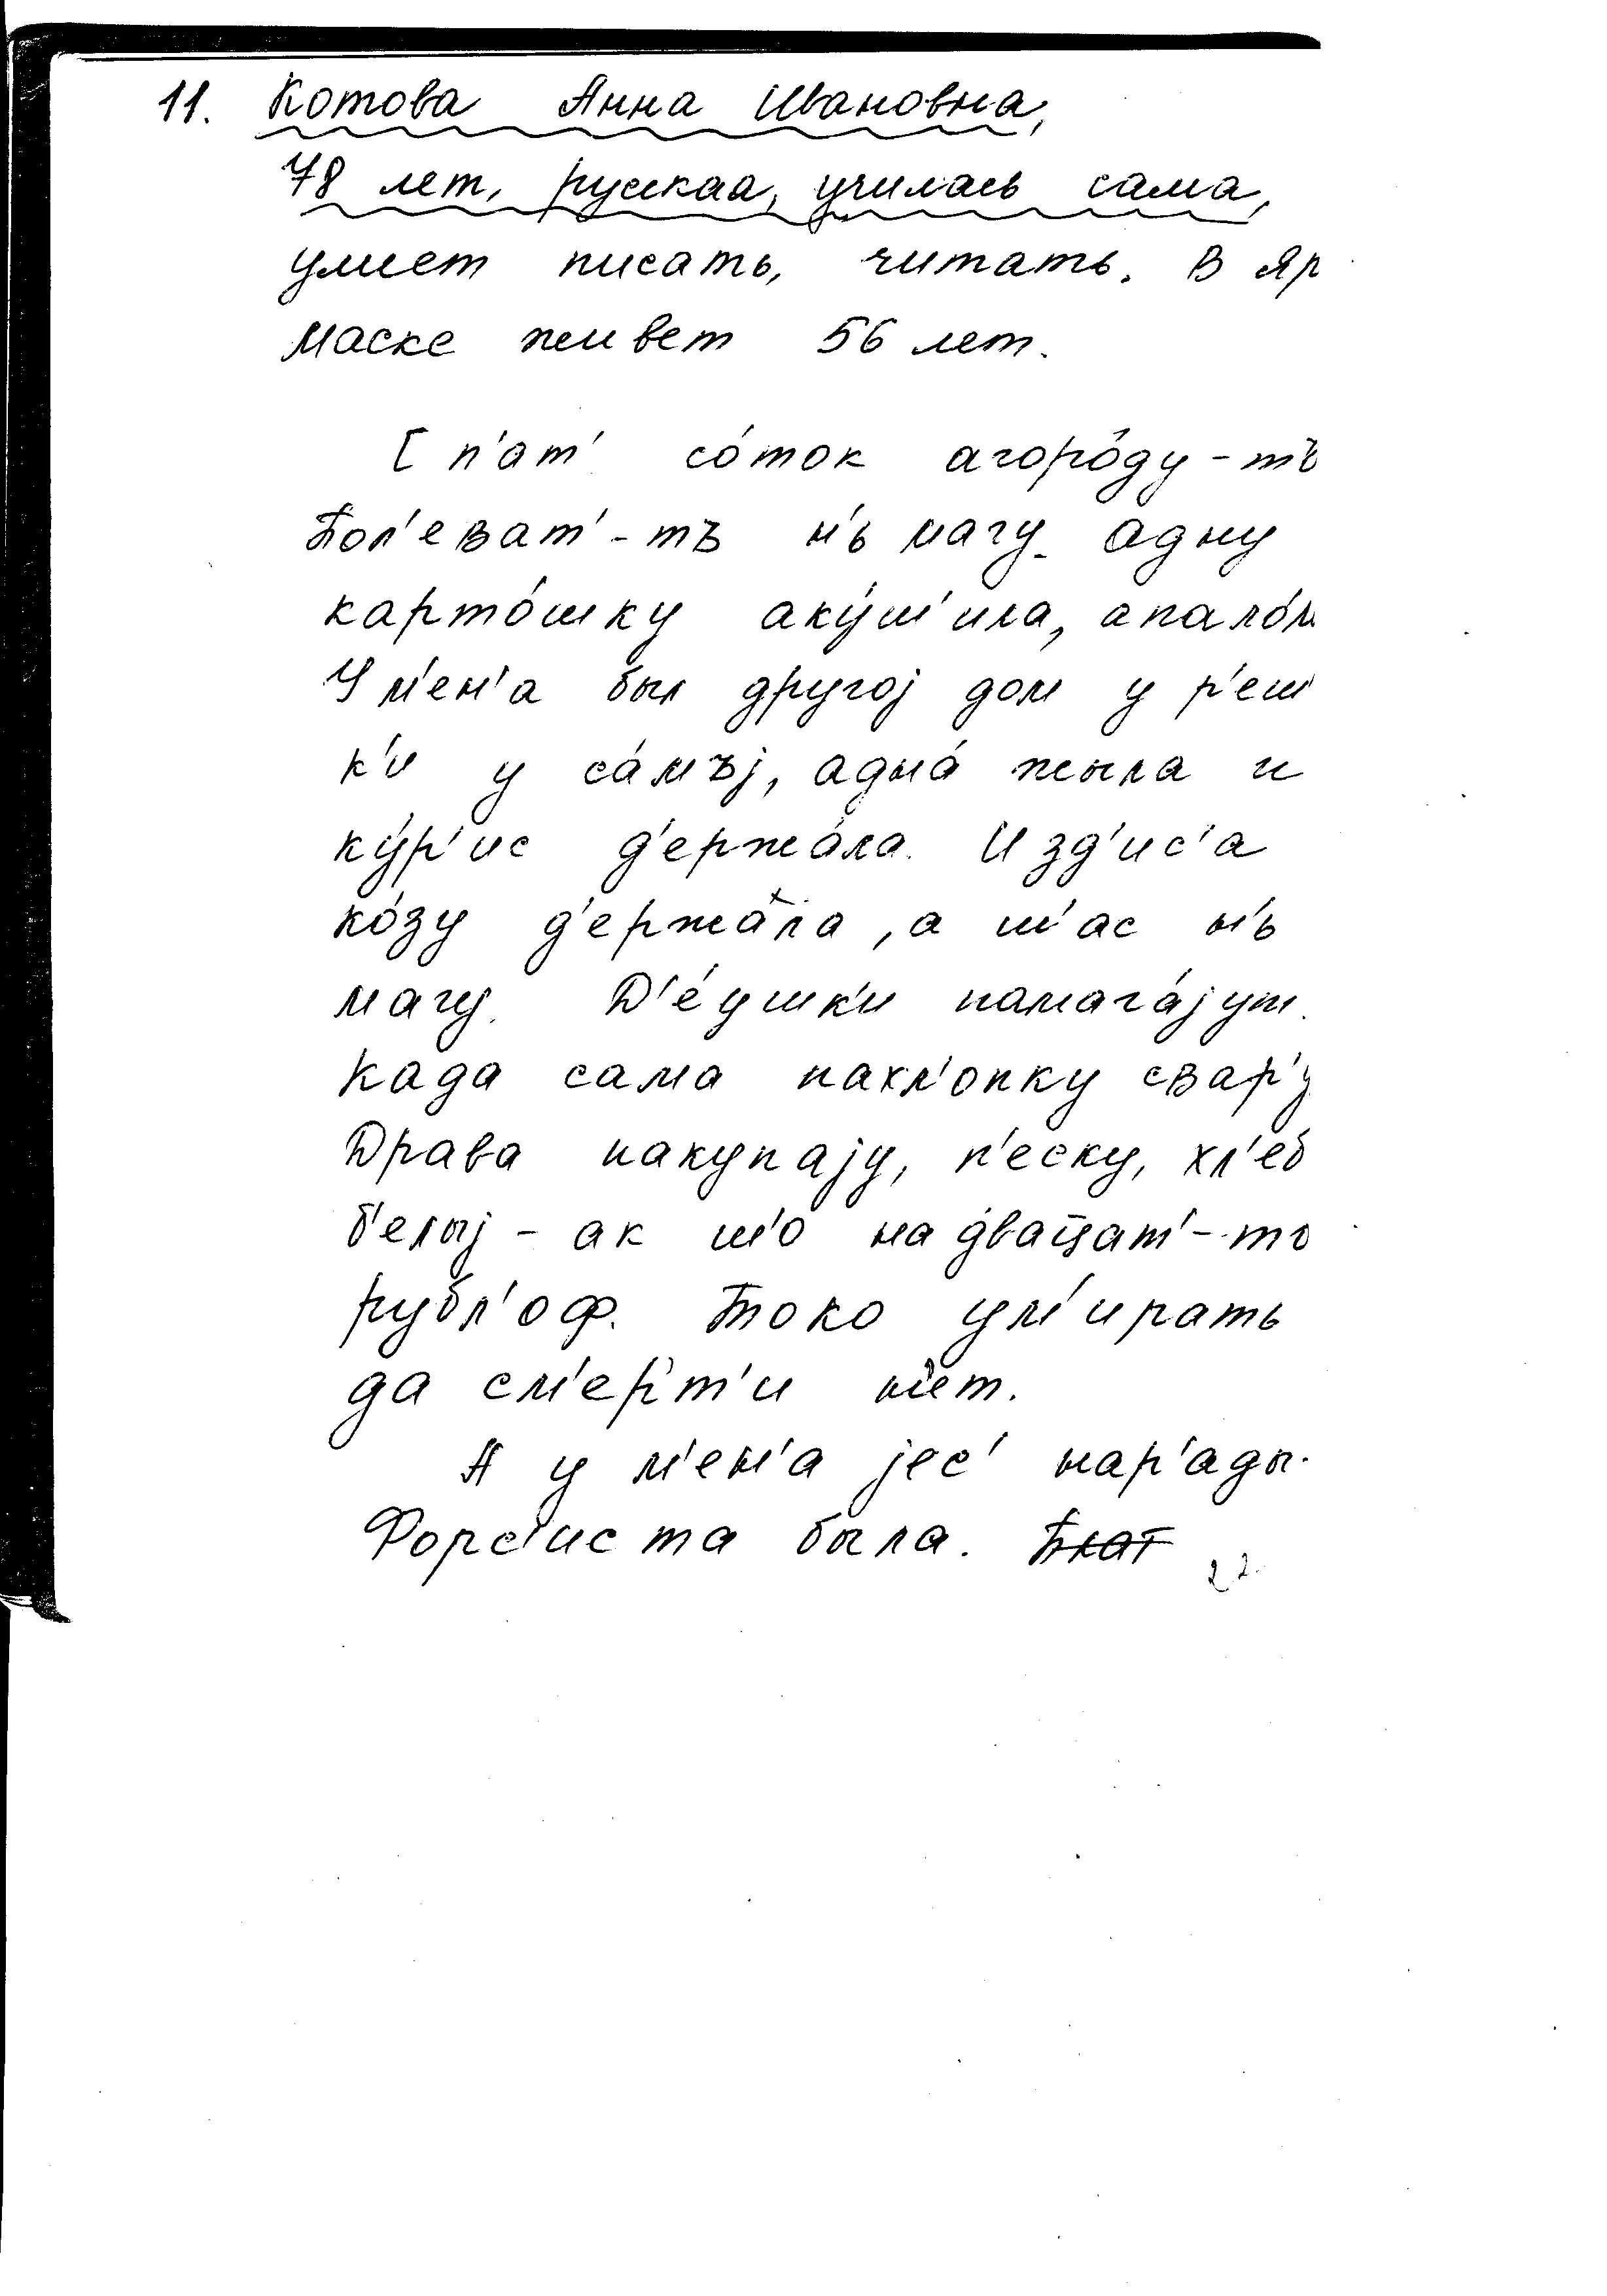 11. Котова Анна Ивановна,
78 лет, русская, училась сама,
умеет писать, читать. В Яр
маске живет 56 лет.
[ п'ат' со́ток агоро́ду-тъ
Бол'еват'-тъ н'ь магу. Адну
карто́шку аку́ш'ила, апало́л
У м'ен'а был другој дом у р'еш
к'и у са́мъј, адна́ жыла и
ку́р'ис д'ержа́ла. И зд'ис'а
ко́зу д'ержа́ла, а ш'ас н'ь
магу. Д'е́ушк'и памага́јут.
Када сама пахл'опку свар'у
Драва пакупају, п'еску, хл'еб
б'елыј - ак ш'о на двацат'-тъ
рубл'оф. Токо ум'ирать
да см'ерт'и н'ет.
А у м'ен'а јес' нар'ады.
Форс'иста была.
22